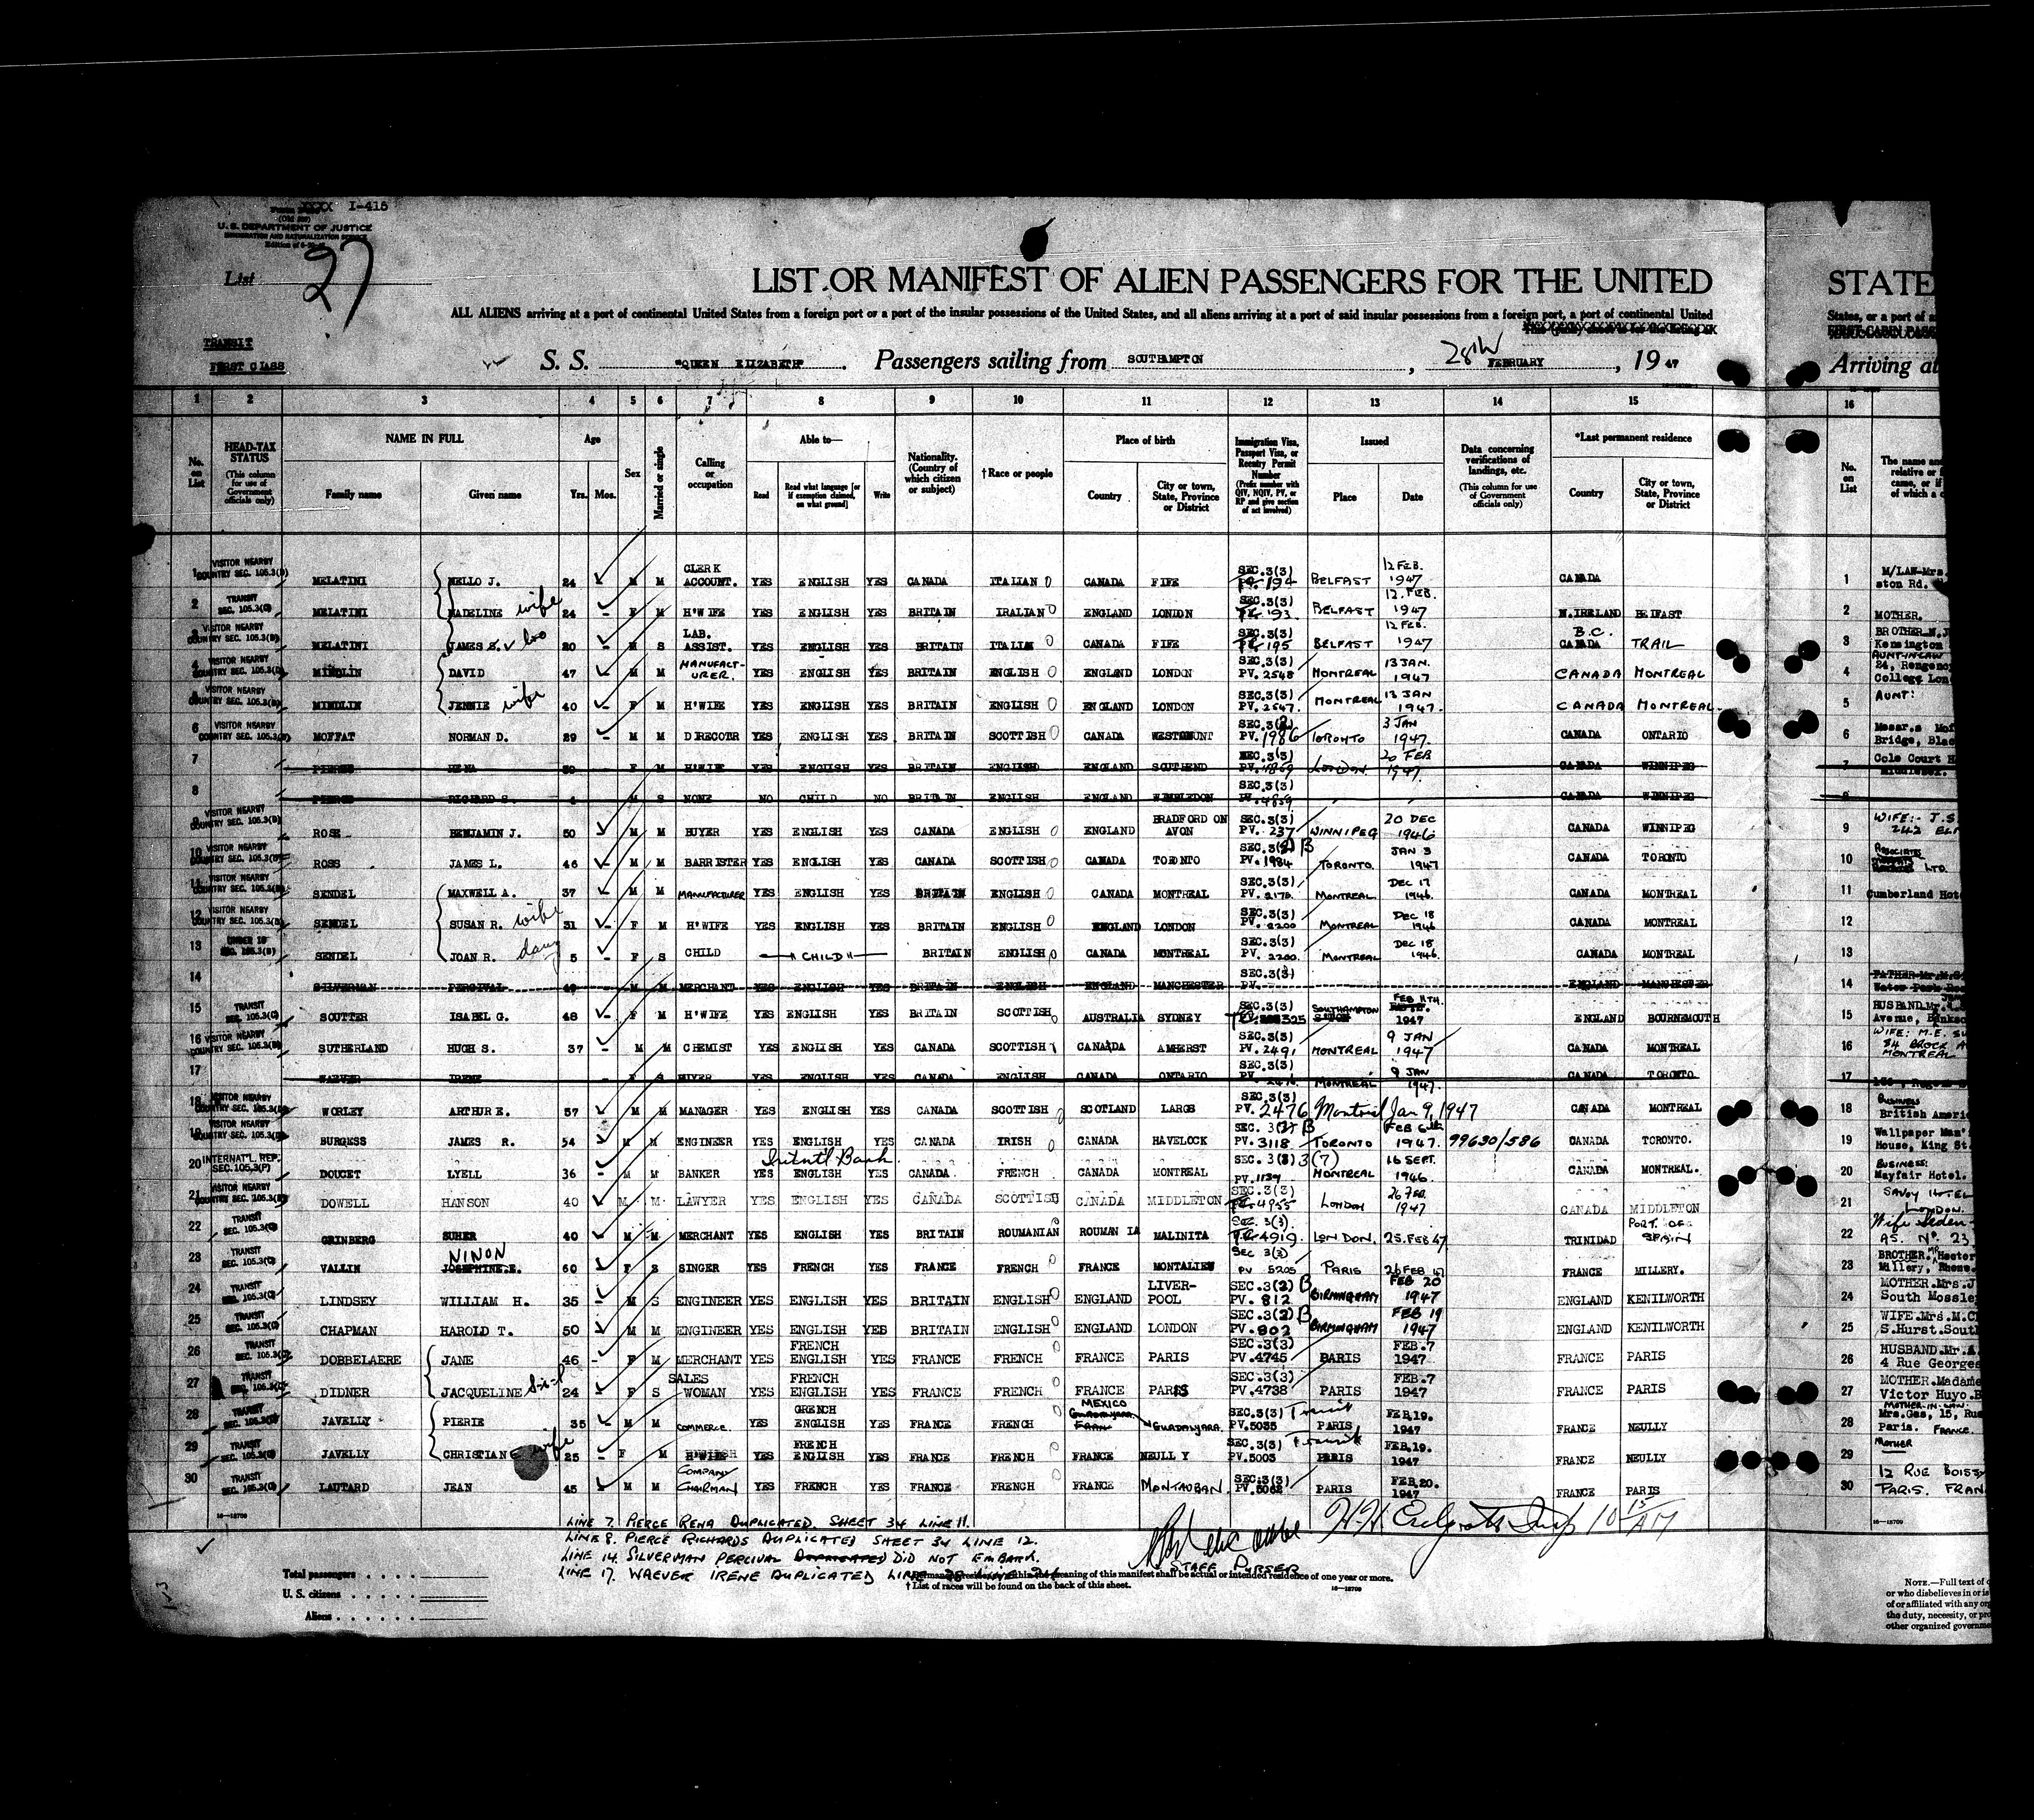 XXXX I-415
U. S. DEPARTMENT OF JUSTICE
IMMIGRATION AND NATURALIZATION SERVICE
List 27
LIST OR MANIFEST OF ALIEN PASSENGERS FOR THE UNITED
STATE
ALL ALIENS arriving at a port of continental United States from a foreign port or a port of the insular possessions of the United States, and all aliens arriving at a port of said insular possessions from a foreign port, a port of continental United
States, or a port of
TRANSIT
FIRST CLASS
S. S. "QUEEN ELIZABETH". Passengers sailing from SOUTHAMPTON, 28th FEBRUARY, 19 47
Arriving at
1 2 3 4 5 6 7 8 9 10 11 12 13 14 15 16
No. on List
HEAD-TAX STATUS (This column for use of Government officials only)
NAME IN FULL Family name Given name
Age Yrs. Mos.
Sex
Married or single
Calling or occupation
Able to— Read Read what language [or if exemption claimed, on what ground] Write
Nationality. (Country of which citizen or subject)
†Race or people
Place of birth Country City or town, State, Province or District
Immigration Visa, Passport Visa, or Reentry Permit Number (Prefix number with QIV, NQIV, PV, or RP and give section of act involved)
Issued Place Date
Data concerning verifications of landings, etc. (This column for use of Government officials only)
*Last permanent residence Country City or town, State, Province or District
No. on List
The name and relative or came, or if of which a
1 VISITOR NEARBY COUNTRY SEC. 105.3(B) MELATINI NELLO J. 24 M M CLERK ACCOUNT. YES ENGLISH YES CANADA ITALIAN CANADA FIFE SEC.3(3) 194 BELFAST 12 FEB. 1947 CANADA 1 M/LAW-Mrs. ston Rd.
2 TRANSIT SEC. 105.3(C) MELATINI MADELINE wife 24 F M H'WIFE YES ENGLISH YES BRITAIN IRALIAN ENGLAND LONDON SEC.3(3) 193 BELFAST 12. FEB. 1947 N.IRELAND BELFAST 2 MOTHER.
3 VISITOR NEARBY COUNTRY SEC. 105.3(B) MELATINI JAMES S. bro 20 M S LAB. ASSIST. YES ENGLISH YES BRITAIN ITALIAN CANADA FIFE SEC.3(3) 195 BELFAST 12 FEB. 1947 B.C. CANADA TRAIL 3 BROTHER Kensington
4 VISITOR NEARBY COUNTRY SEC. 105.3(B) MINDLIN DAVID 47 M M MANUFACTURER. YES ENGLISH YES BRITAIN ENGLISH ENGLAND LONDON SEC.3(3) PV. 2548 MONTREAL 13 JAN. 1947 CANADA MONTREAL 4 AUNT-IN-LAW 24, Regency College Lon
5 VISITOR NEARBY COUNTRY SEC. 105.3(B) MINDLIN JENNIE wife 40 F M H'WIFE YES ENGLISH YES BRITAIN ENGLISH ENGLAND LONDON SEC.3(3) PV. 2547. MONTREAL 13 JAN 1947. CANADA MONTREAL. 5 AUNT:
6 VISITOR NEARBY COUNTRY SEC. 105.3(B) MOFFAT NORMAN D. 29 M M DIRECOTR YES ENGLISH YES BRITAIN SCOTTISH CANADA WESTMOUNT SEC.3(2) PV. 1986 TORONTO 3 JAN 1947. CANADA ONTARIO 6 Messrs Mof Bridge, Blac
7 PIERCE RENA 30 F M H'WIFE YES ENGLISH YES BRITAIN ENGLISH ENGLAND SOUTHEND SEC.3(3) PV. 4859 LONDON. 20 FEB 1947. CANADA WINNIPEG 7 Cole Court H
8 PIERCE RICHARD S. M S NONE NO CHILD NO BRITAIN ENGLISH ENGLAND WIMBLEDON SEC.3(3) 4859 CANADA WINNIPEG 8
9 VISITOR NEARBY COUNTRY SEC. 105.3(B) ROSE BENJAMIN J. 50 M M BUYER YES ENGLISH YES CANADA ENGLISH ENGLAND BRADFORD ON AVON SEC.3(3) PV. 237 WINNIPEG 20 DEC 1946 CANADA WINNIPEG 9 WIFE:- J.S 242
10 VISITOR NEARBY COUNTRY SEC. 105.3(B) ROSS JAMES L. 46 M M BARRISTER YES ENGLISH YES CANADA SCOTTISH CANADA TORONTO SEC.3(2) B PV. 1984 TORONTO. JAN 3 1947 CANADA TORONTO 10 ASSOCIATES LTD.
11 VISITOR NEARBY COUNTRY SEC. 105.3(B) SENDEL MAXWELL A. 37 M M MANUFACTURER YES ENGLISH YES BRITAIN ENGLISH CANADA MONTREAL SEC.3(3) PV. 2170. MONTREAL DEC 17 1946. CANADA MONTREAL 11 Cumberland Hot
12 VISITOR NEARBY COUNTRY SEC. 105.3(B) SENDEL SUSAN R. wife 31 F M H'WIFE YES ENGLISH YES BRITAIN ENGLISH ENGLAND LONDON SEC.3(3) PV. 2200 MONTREAL DEC 18 1946 CANADA MONTREAL 12
13 UNDER 16 SEC. 105.3(B) SENDEL JOAN R. daug 5 F S CHILD "CHILD" BRITAIN ENGLISH CANADA MONTREAL SEC.3(3) PV. 2200. MONTREAL DEC 18 1946. CANADA MONTREAL 13
14 SILVERMAN PERCIVAL 49 M M MERCHANT YES ENGLISH YES BRITAIN ENGLISH ENGLAND MANCHESTER SEC.3(3) PV. ENGLAND MANCHESTER 14 FATHER Mr.M.S. Water Park Roa
15 TRANSIT SEC. 105.3(C) SOUTTER ISABEL G. 48 F M H'WIFE YES ENGLISH YES BRITAIN SCOTTISH AUSTRALIA SYDNEY SEC.3(3) 325 SOUTHAMPTON FEB 11TH. 1947 ENGLAND BOURNEMOUTH 15 HUSBAND.Mr. Avenue, Banksо
16 VISITOR NEARBY COUNTRY SEC. 105.3(B) SUTHERLAND HUGH S. 37 M M CHEMIST YES ENGLISH YES CANADA SCOTTISH CANADA AMHERST SEC.3(3) PV. 2491 MONTREAL 9 JAN 1947 CANADA MONTREAL 16 WIFE: M.E. SU 84 BROCK A MONTREAL
17 WAEVER IRENE F S BUYER YES ENGLISH YES CANADA ENGLISH CANADA ONTARIO SEC.3(3) MONTREAL 9 JAN 1947. CANADA TORONTO 17
18 VISITOR NEARBY COUNTRY SEC. 105.3(B) WORLEY ARTHUR E. 57 M M MANAGER YES ENGLISH YES CANADA SCOTTISH SCOTLAND LARGS SEC.3(3) PV. 2476 Montreal Jan 9, 1947 CANADA MONTREAL 18 BUSINESS British Ameri
19 VISITOR NEARBY COUNTRY SEC. 105.3(B) BURGESS JAMES R. 54 M M ENGINEER YES ENGLISH YES CANADA IRISH CANADA HAVELOCK SEC. 3(2) B PV. 3118 TORONTO FEB 6th 1947. 99630/586 CANADA TORONTO. 19 Wallpaper Man' House, King St.
20 INTERNAT'L REP. SEC.105.3(F) DOUCET LYELL 36 M M BANKER YES Internt'l Bank ENGLISH YES CANADA. FRENCH CANADA MONTREAL SEC. 3(3) 3(7) PV.1139 MONTREAL 16 SEPT. 1946. CANADA MONTREAL. 20 BUSINESS: Mayfair Hotel.
21 VISITOR NEARBY COUNTRY SEC. 105.3(B) DOWELL HANSON 40 M M LAWYER YES ENGLISH YES CANADA SCOTTISH CANADA MIDDLETON SEC.3(3) 4955 LONDON 26 FEB. 1947 CANADA MIDDLETON 21 SAVOY HOTEL LONDON.
22 TRANSIT SEC. 105.3(C) GRINBERG SUHER 40 M M MERCHANT YES ENGLISH YES BRITAIN ROUMANIAN ROUMANIA MALINITA SEC. 3(3). 4919. LONDON. 25.FEB 47 TRINIDAD PORT. OF SPAIN 22 Wife AS. No. 23
23 TRANSIT SEC. 105.3(C) VALLIN NINON JOSEPHINE.E. 60 F S SINGER YES FRENCH YES FRANCE FRENCH FRANCE MONTALIEU SEC 3(3) PV 5205 PARIS 26 FEB 47 FRANCE MILLERY. 23 BROTHER. Mr Hector Millery, Rhone.
24 TRANSIT SEC. 105.3(C) LINDSEY WILLIAM H. 35 M S ENGINEER YES ENGLISH YES BRITAIN ENGLISH ENGLAND LIVER-POOL SEC.3(2) B PV. 812 BIRMINGHAM FEB 20 1947 ENGLAND KENILWORTH 24 MOTHER.Mrs.J South Mossle
25 TRANSIT SEC. 105.3(C) CHAPMAN HAROLD T. 50 M M ENGINEER YES ENGLISH YES BRITAIN ENGLISH ENGLAND LONDON SEC.3(2) B PV.802 BIRMINGHAM FEB 19 1947 ENGLAND KENILWORTH 25 WIFE.Mrs.M.C S.Hurst.Sout
26 TRANSIT SEC. 105.3(C) DOBBELAERE JANE 46 F M MERCHANT YES FRENCH ENGLISH YES FRANCE FRENCH FRANCE PARIS SEC.3(3) PV.4745 PARIS FEB.7 1947 FRANCE PARIS 26 HUSBAND.Mr.A. 4 Rue Georges
27 TRANSIT SEC. 105.3(C) DIDNER JACQUELINE 24 F S SALES WOMAN YES FRENCH ENGLISH YES FRANCE FRENCH FRANCE PARIS SEC.3(3) PV.4738 PARIS FEB.7 1947 FRANCE PARIS 27 MOTHER.Madame Victor Huyo.B
28 TRANSIT SEC. 105.3(C) JAVELLY PIERIE 35 M M COMMERCE. YES GRENCH ENGLISH YES FRANCE FRENCH MEXICO GUADALYARA. SEC.3(3) Transit PV.5035 PARIS FEB.19. 1947 FRANCE NEULLY 28 MOTHER-IN-LAW. Mrs.Gas, 15, Rue Paris. FRANCE.
29 TRANSIT SEC. 105.3(C) JAVELLY CHRISTIANE wife 25 F M H'WIFE YES FRENCH ENGLISH YES FRANCE FRENCH FRANCE NEULLY SEC.3(3) Transit PV.5003 PARIS FEB.19. 1947 FRANCE NEULLY 29 MOTHER
30 TRANSIT SEC. 105.3(C) LAUTARD JEAN 45 M M COMPANY CHAIRMAN YES FRENCH YES FRANCE FRENCH FRANCE MONTAUBAN. SEC.3(3) PV.5062 PARIS FEB.20. 1947 FRANCE PARIS 30 12 RUE BOISS PARIS. FRAN
16—18709
LINE 7. PIERCE RENA DUPLICATED. SHEET 34 LINE 11.
LINE 8. PIERCE RICHARDS DUPLICATED SHEET 34 LINE 12.
LINE 14. SILVERMAN PERCIVAL DUPLICATED DID NOT EMBARK.
LINE 17. WAEVER IRENE DUPLICATED
STAFF PURSER
10 15 AM
meaning of this manifest shall be actual or intended residence of one year or more.
† List of races will be found on the back of this sheet.
16—18709
Total passengers
U. S. citizens
Aliens
NOTE.—Full text of
or who disbelieves in or is
of or affiliated with any org
the duty, necessity, or pro
other organized governme